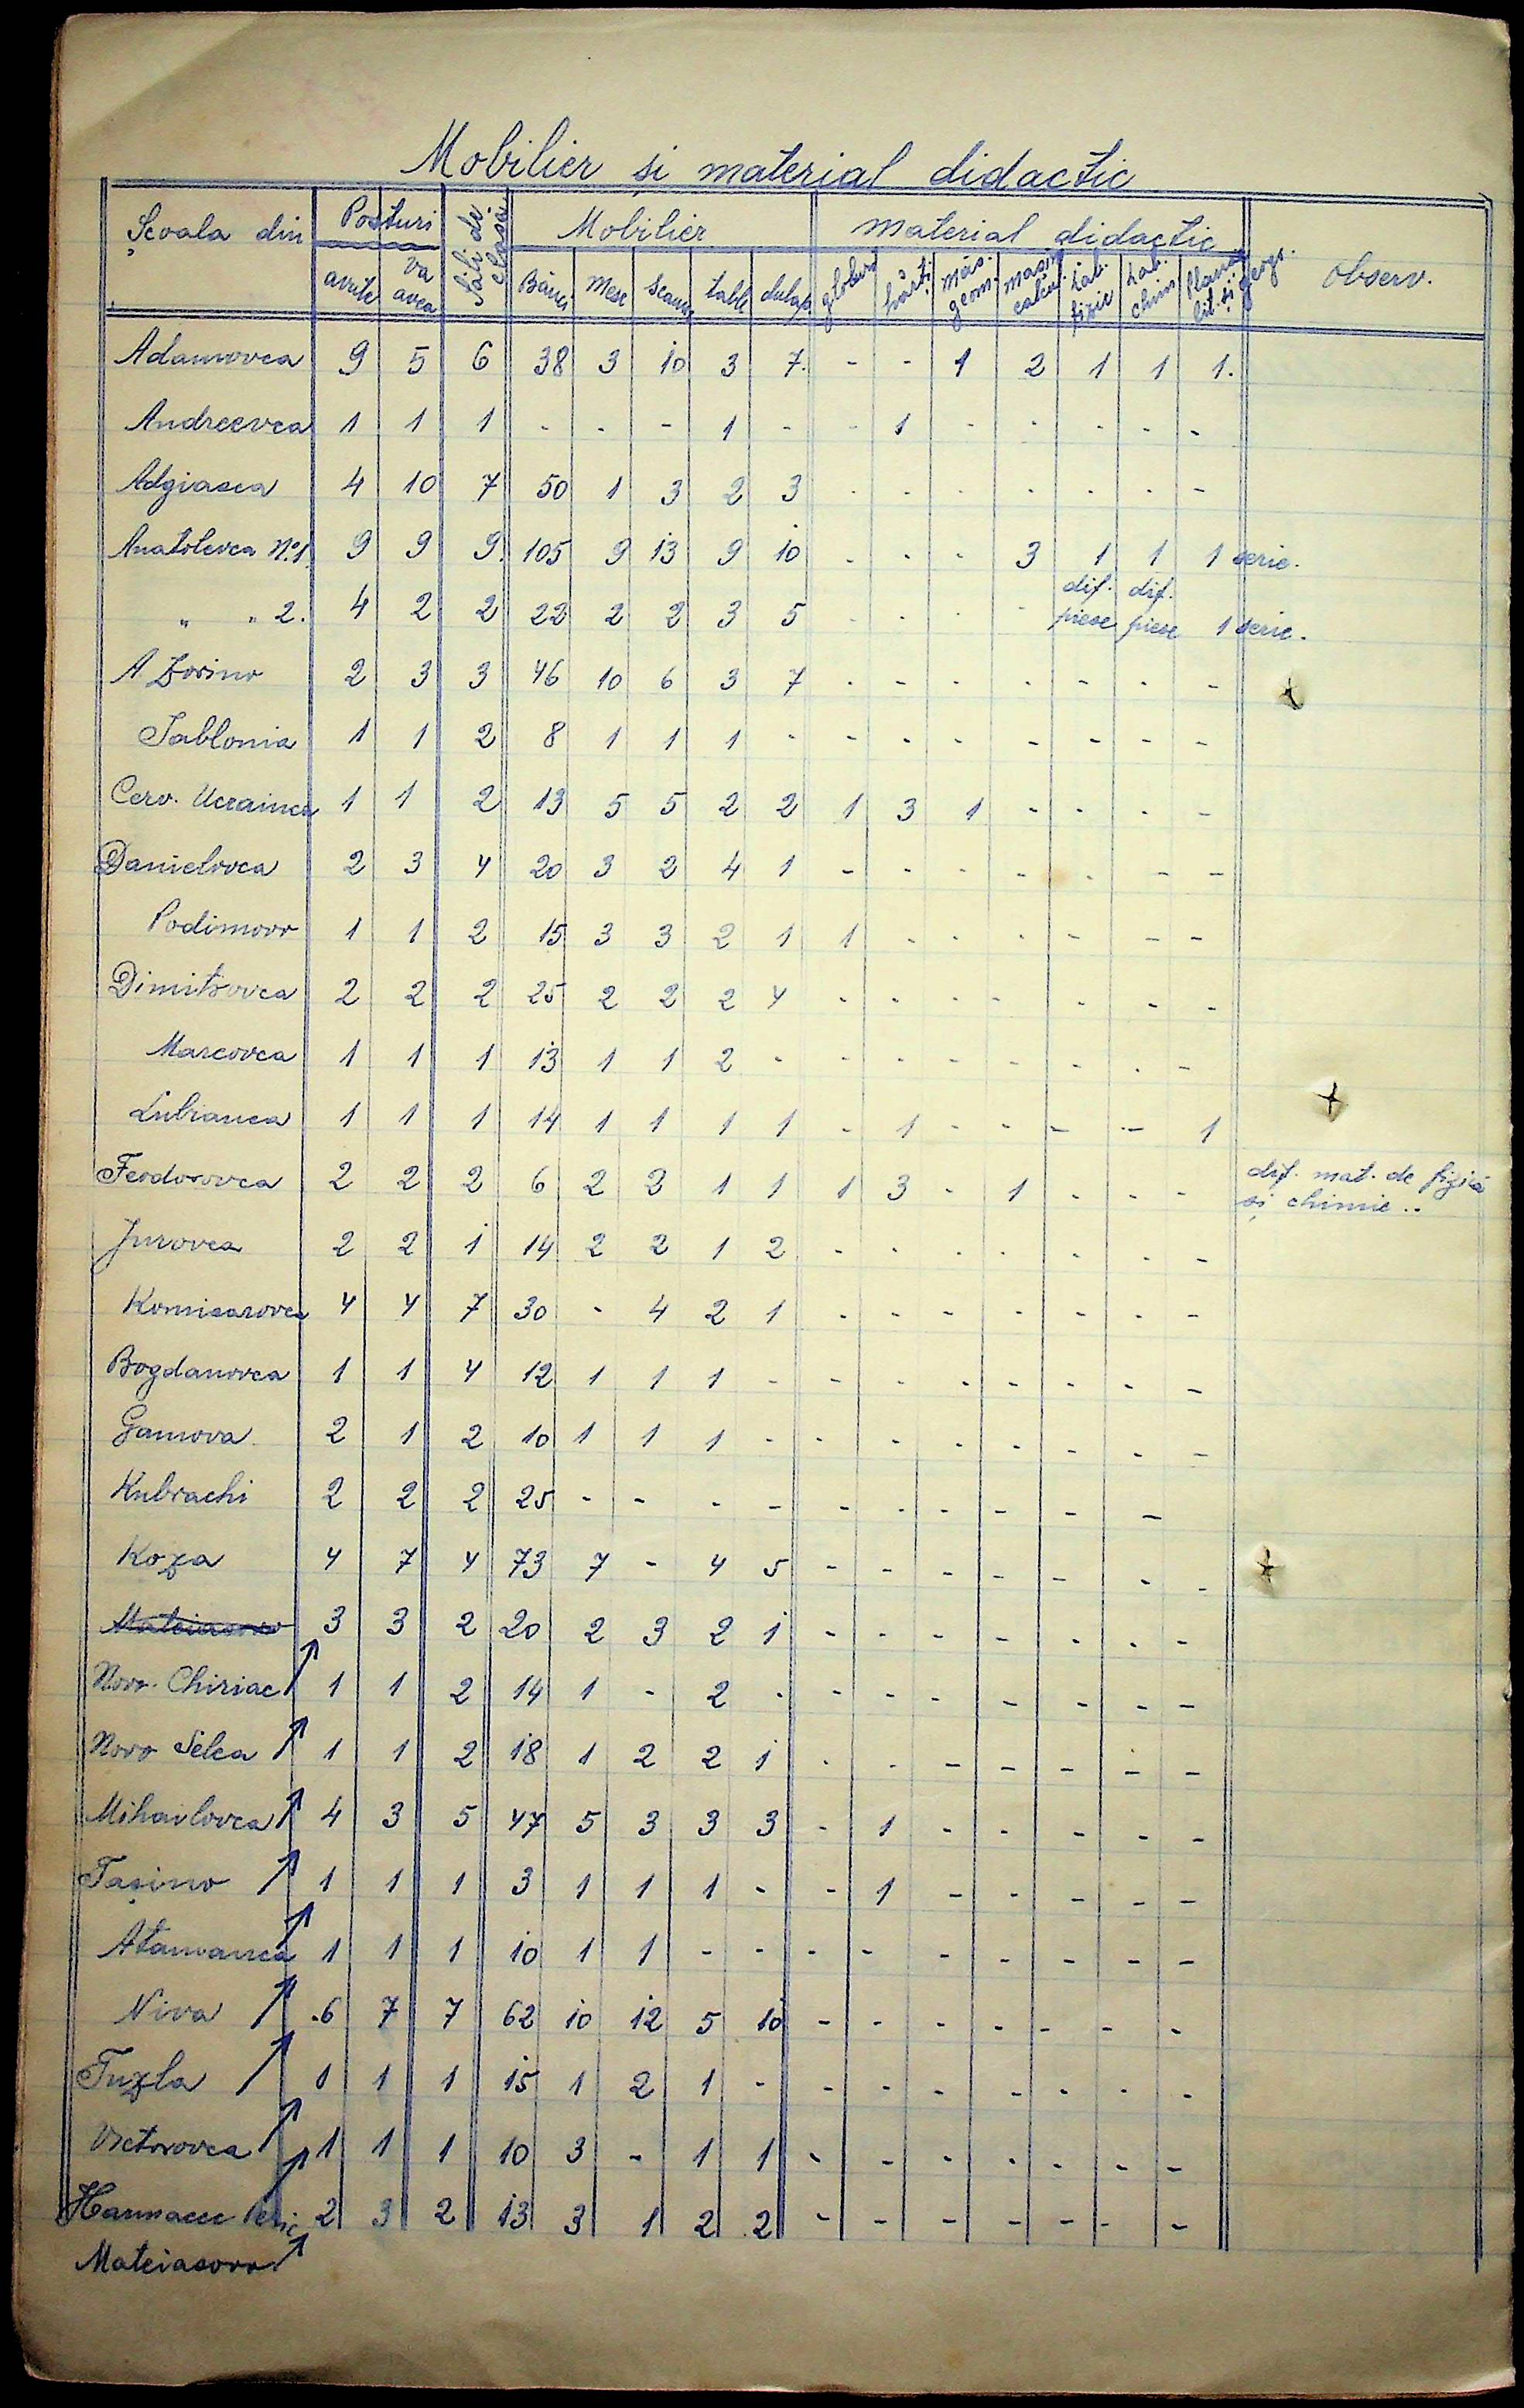 Mobilier și material didactic
Școala din Posturi Săli de clasă Mobilier material didactic Observ.
avute va avea Bănci Mese Scaune table dulap. globuri hărți măs. geom. mașin calcul Lab. fizic Lab. chim. Planșe lit. și geogr.
Adamovca 9 5 6 38 3 10 3 7. - - 1 2 1 1 1.
Andreevca 1 1 1 - - - 1 - - 1 - - - - -
Adgiasca 4 10 7 50 1 3 2 3 - - - - - - -
Anatolevca No.1. 9 9 9. 105 9 13 9 10 - - - 3 1 1 1 serie.
" " 2. 4 2 2 22 2 2 3 5 - - - - dif. piese dif. piese 1 serie.
A Zorino 2 3 3 46 10 6 3 7 - - - - - - -
Iablonia 1 1 2 8 1 1 1 - - - - - - - -
Cerv. Ucrainca 1 1 2 13 5 5 2 2 1 3 1 - - - -
Danielovca 2 3 4 20 3 2 4 1 - - - - - - -
Podimovo 1 1 2 15 3 3 2 1 1 - - - - - -
Dimitrovca 2 2 2 25 2 2 2 4 - - - - - - -
Marcovca 1 1 1 13 1 1 2 - - - - - - - -
Lubianca 1 1 1 14 1 1 1 1 - 1 - - - - 1
Feodorovca 2 2 2 6 2 2 1 1 1 3 - 1 - - - dif. mat. de fizică
și chimie ..
Jurovca 2 2 1 14 2 2 1 2 - - - - - - -
Komisarovca 4 4 7 30 - 4 2 1 - - - - - - -
Bogdanovca 1 1 4 12 1 1 1 - - - - - - - -
Gamova 2 1 2 10 1 1 1 - - - - - - - -
Kubrachi 2 2 2 25 - - - - - - - - - -
Koza 4 7 4 73 7 - 4 5 - - - - - - -
Mateiasovo 3 3 2 20 2 3 2 1 - - - - - - -
Novo. Chiriac 1 1 2 14 1 - 2 - - - - - - - -
Novo Selca 1 1 2 18 1 2 2 1 - - - - - - -
Mihailovca 4 3 5 47 5 3 3 3 - 1 - - - - -
Tașino 1 1 1 3 1 1 1 - - 1 - - - - -
Atamanca 1 1 1 10 1 1 - - - - - - - - -
Niva 6 7 7 62 10 12 5 10 - - - - - - -
Tuzla 1 1 1 15 1 2 1 - - - - - - - -
Victorovca 1 1 1 10 3 - 1 1 - - - - - - -
2 3 2 13 3 1 2 2 - - - - - - -
Mateiasovo